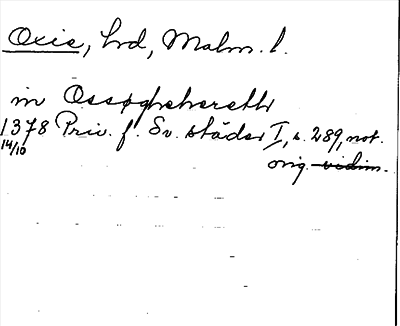 Oxie, hd, Malm. l.
in Ossøghæhæreth
1378 Priv. f. Sv. städer I, s. 289, not.
14/10
orig. vidim.